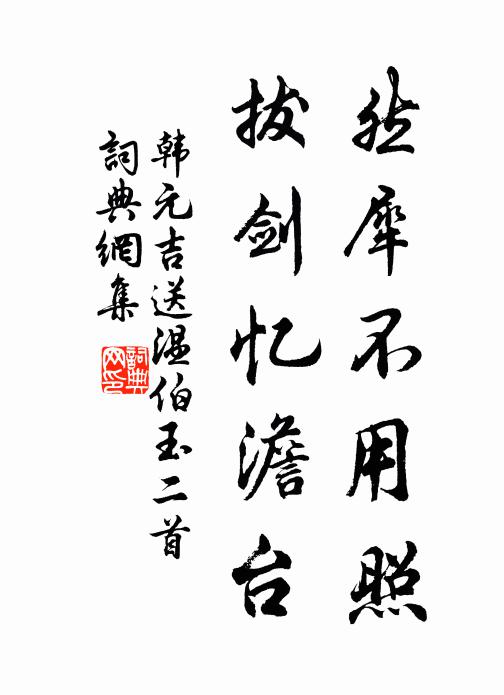 然犀不用照
拔剑忆澹台
韩元吉送温伯玉二首
詞典網集
詞典网印